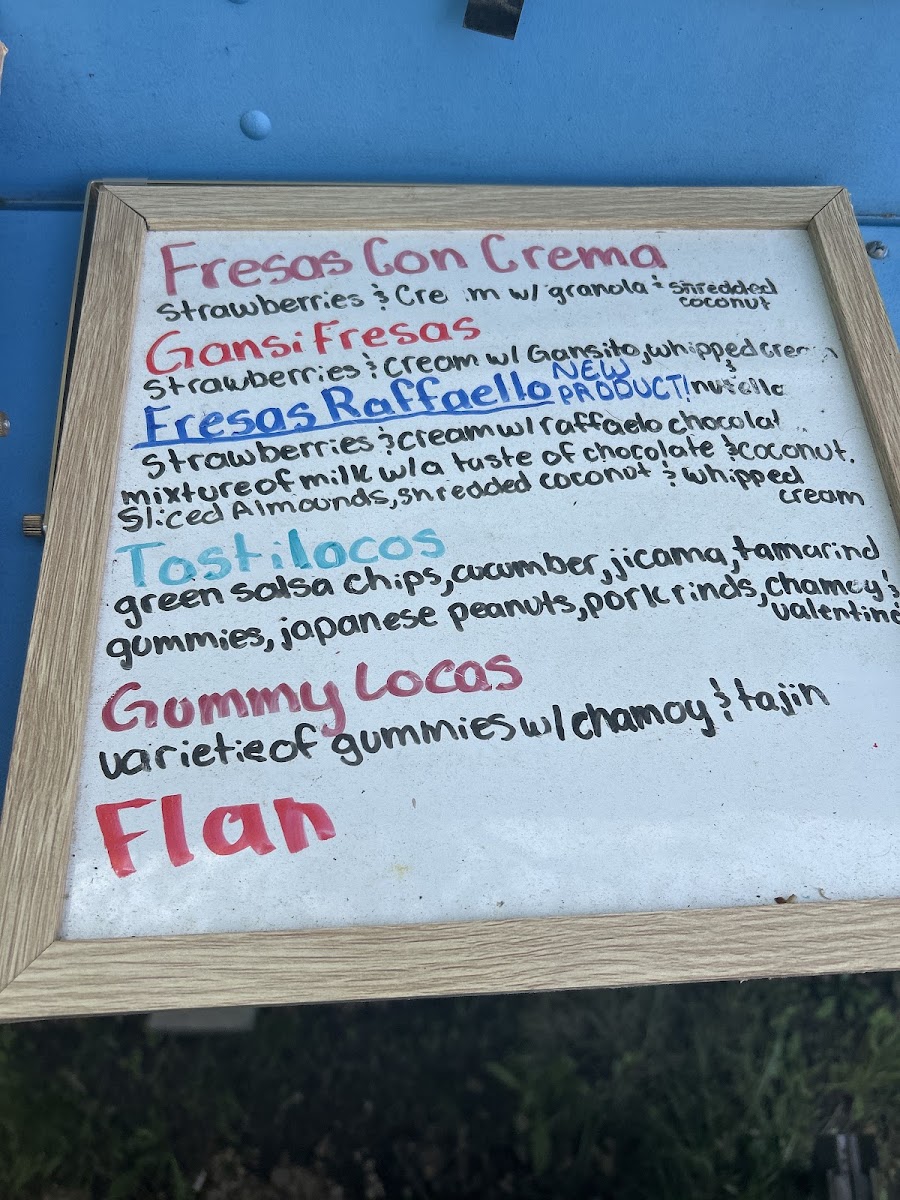 Fresas Con Crema
Strawberries & Cre m w/ granola & shredded
coconut
GansiFresas
Strawberries & cream w/ Gansito, whipped cream
& nutella
Fresas Raffaello NEW
PRODUCT!
Strawberries & cream w/ raffaelo chocolat
mixture of milk w/ a taste of chocolate & coconut.
Sliced Almounds, shredded coconut & whipped
cream
Tostilocos
green salsa chips, cucumber, jicama, tamarind
gummies, japanese peanuts, pork rinds, chamoy &
valentina
Gummy Locas
varietie of gummies w/ chamoy & tajin
Flan